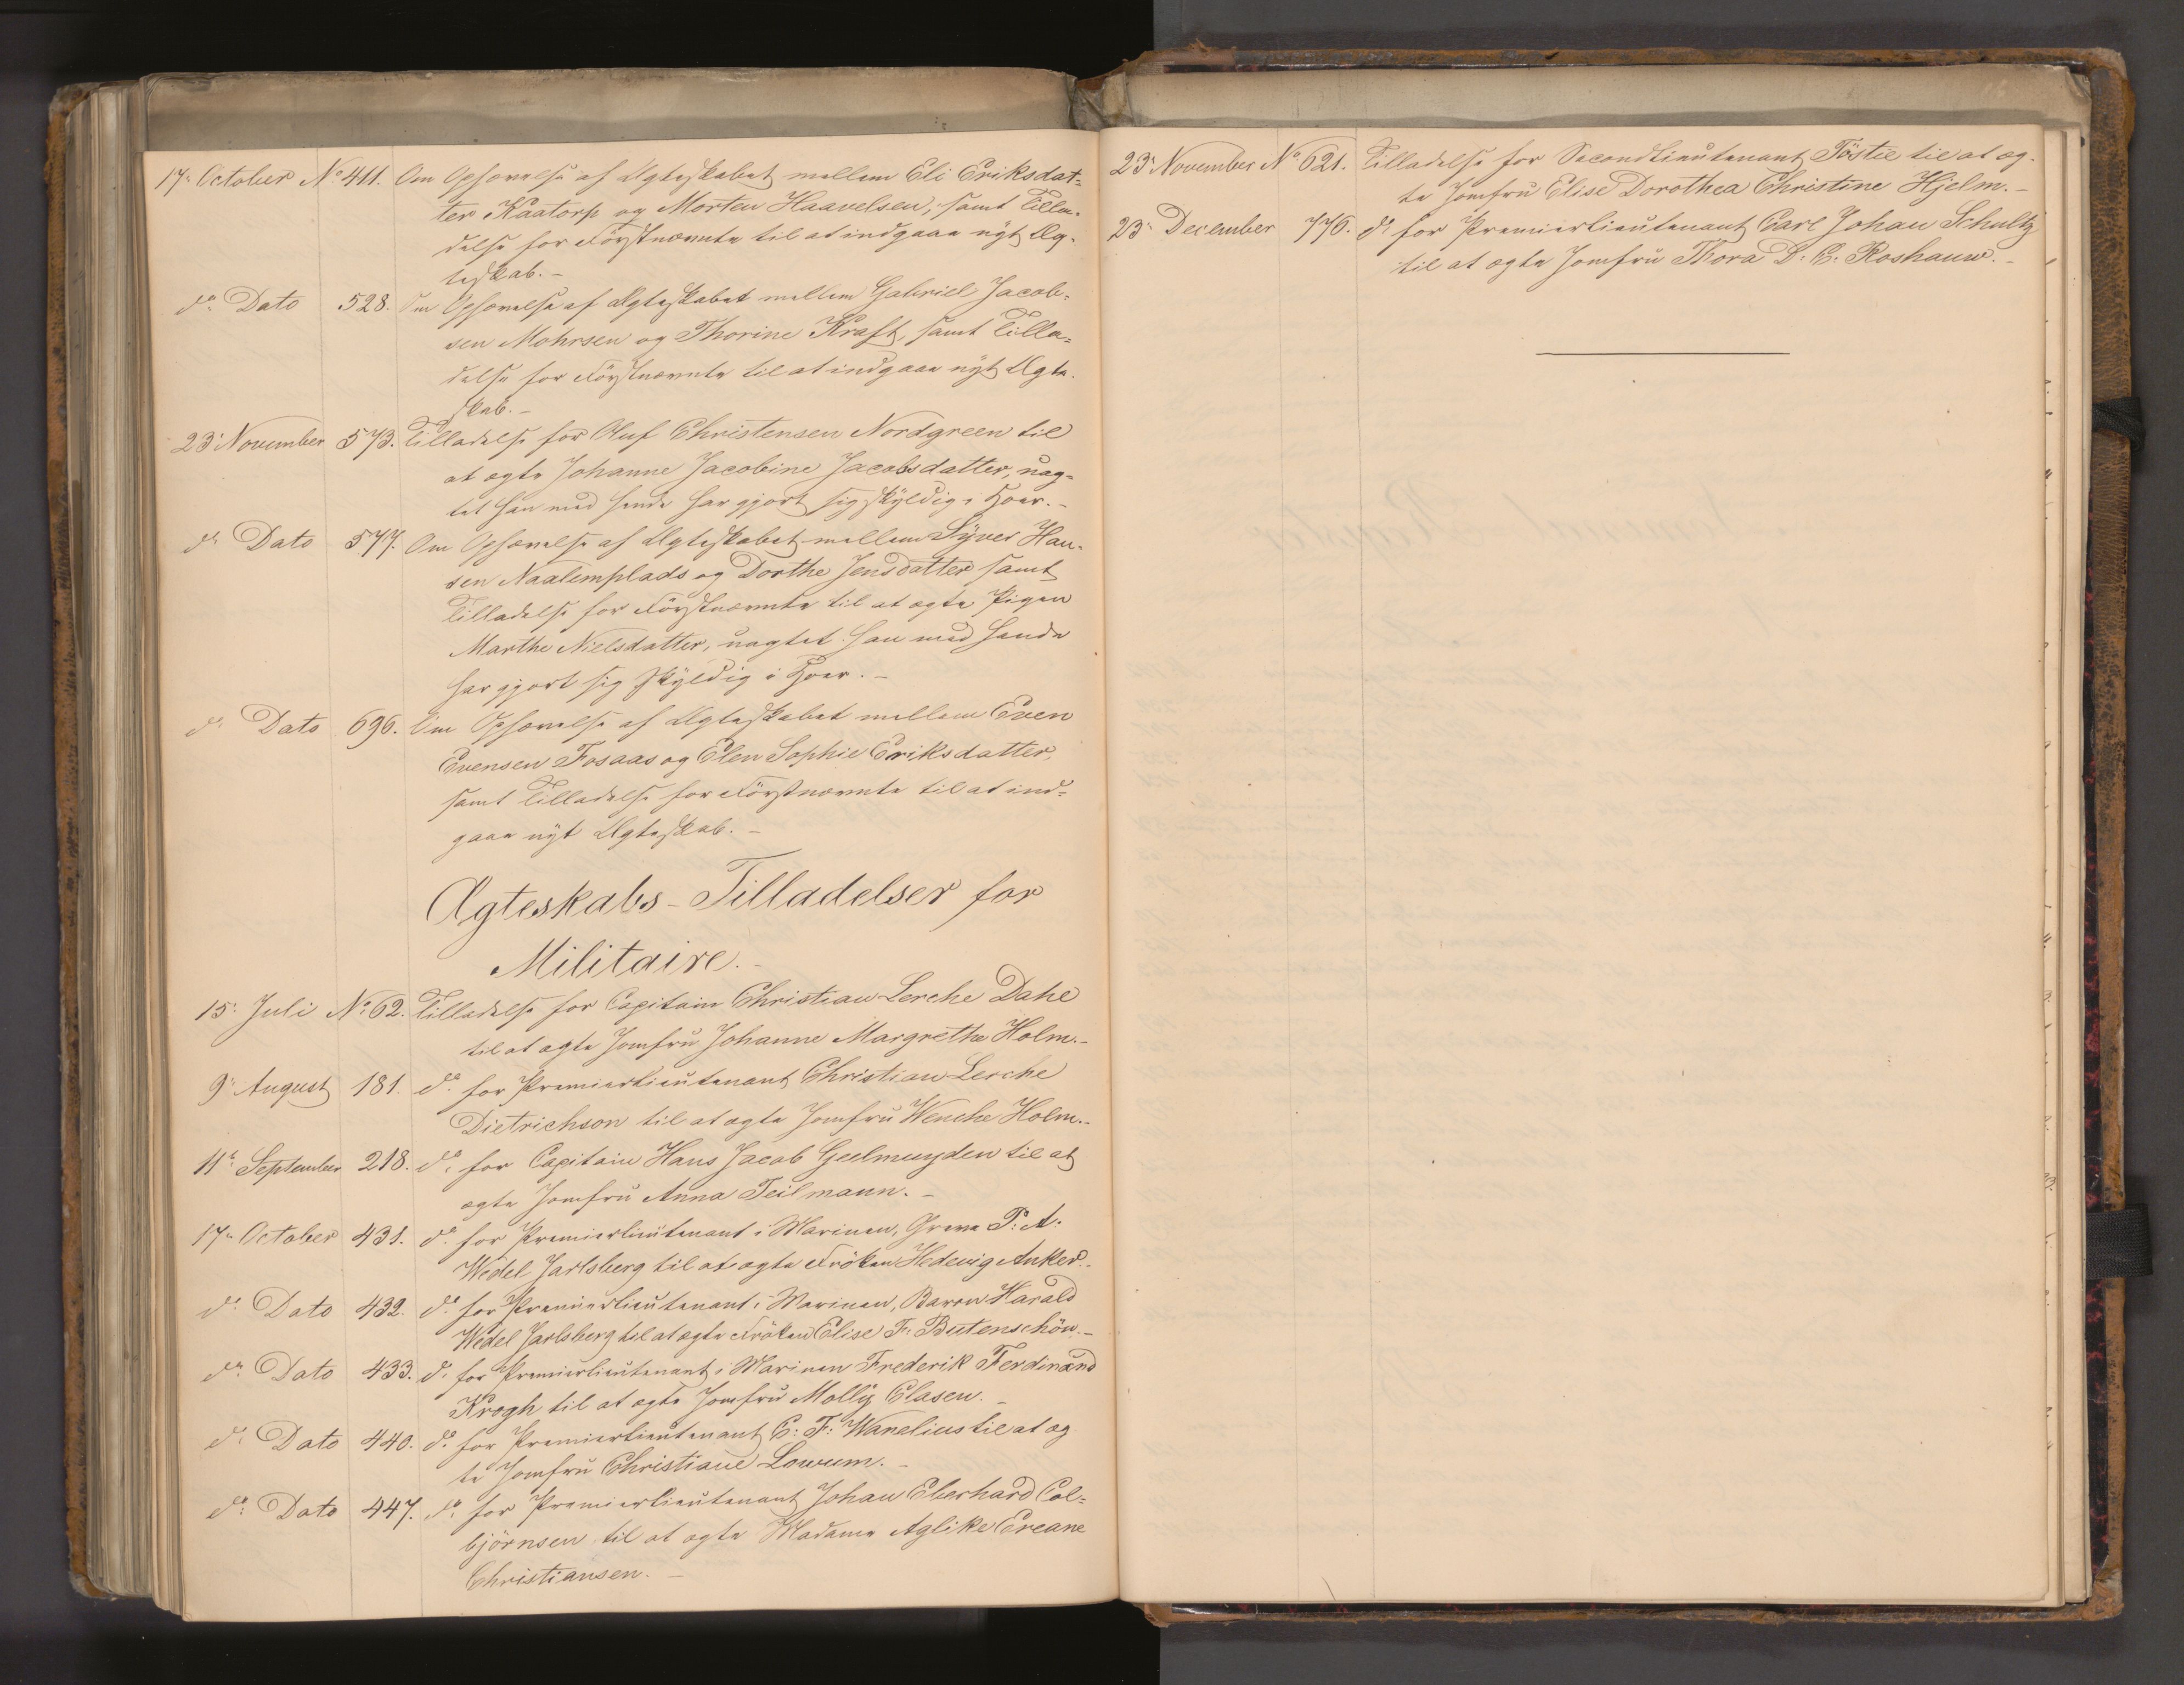 17de October No 411. Om Ophævelse af Ægteskabet mellem Eli Eriksdat-
ter Kaatorp og Morten Haavelsen, samt Tilla-
delse for Förstnævnte til at indgaae nyt Æg-
teskab. -
do Dato 528. Om Ophævelse af Ægteskabet mellem Gabriel Jacob-
sen Mohrsen og Thorine Kraft, samt Tilla-
delse for Förstnævnte til at indgaae nyt Ægte-
skab. -
23de November 573. Tilladelse for Oluf Christensen Nordgreen til
at ægte Johanne Jacobine Jacobsdatter, uag-
tet han med hende har gjort sig skyldig i Hoer. -
do Dato 577. Om Ophævelse af Ægteskabet mellem Syver Han-
sen Naalemplads og Dorthe Jensdatter samt
Tilladelse for Förstnævnte til at ægte Pigen
Marthe Nielsdatter, uagtet han med hende
har gjort sig skyldig i Hoer. -
do Dato 696. Om Ophævelse af Ægteskabet mellem Even
Evensen Fosaas og Elen Sophie Eriksdatter,
samt Tilladelse for Förstnævnte til at ind-
gaae nyt Ægteskab. -
Ægteskabs-Tilladelser for
Militaire. -
15de Juli No 62. Tilladelse for Capitain Christian Lerche Dahl
til at ægte Jomfru Johanne Margrethe Holm. -
9de August 181. do for Premierlieutenant Christian Lerche
Dietrichson til at ægte Jomfru Wenche Holm. -
11te September 218. do for Capitain Hans Jacob Geelmuyden til at
ægte Jomfru Anna Teilmann. -
17de October 431. do for Premierlieutenant i Marinen, Greve P: A:
Wedel Jarlsberg til at ægte Fröken Hedevig Anker. -
do Dato 432. do for Premierlieutenant i Marinen, Baron Harald
Wedel Jarlsberg til at ægte Fröken Elise F: Butenschön. -
do Dato 433. do for Premierlieutenant i Marinen Frederik Ferdinand
Krogh til at ægte Jomfru Molly Clasen. -
do Dato 440. do for Premierlieutenant C: F: Wanelius til at æg
te Jomfru Christiane Lowum. -
do Dato 447. do for Premierlieutenant Johan Eberhard Col-
björnsen til at ægte Madame Aglike Ereane
Christiansen. -
23de November No 621. Tilladelse for Secondlieutenant Töstie til at æg-
te Jomfru Elise Dorothea Christine Hjelm. -
23de December 776. do for Premierlieutenant Carl Johan Schultz
til at ægte Jomfru Thora D: C: Roshauw. -